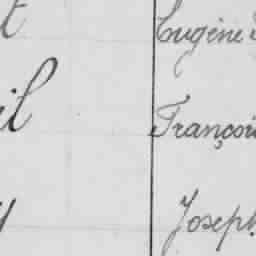 t Eugène
il François
y Joseph